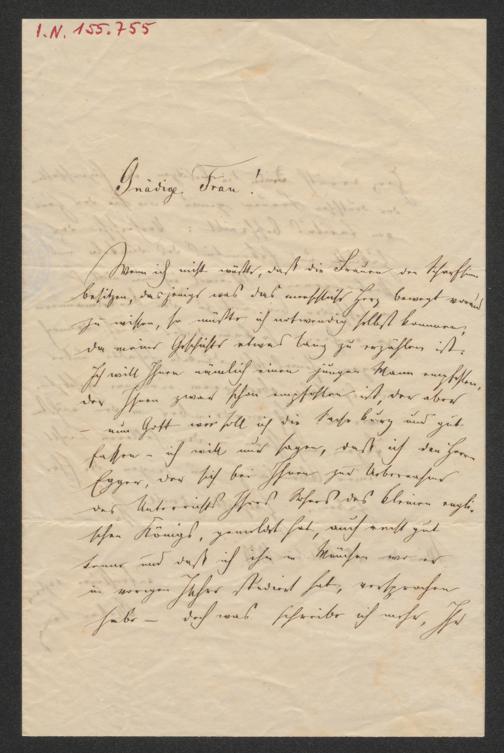 I.N. 155.755
Gnädige Frau!
Wenn ich nicht wüßte, daß die Frauen den Scharfsinn
besitzen, dasjenige was das menschliche Herz bewegt voraus
zu wissen, so müßte ich nothwendig selbst kommen,
da meine Geschichte etwas lang zu erzählen ist.
Ich will Ihnen nämlich einen jungen Mann empfehlen,
der Ihnen zwar schon empfohlen ist, der aber
— nun Gott wie soll ich die Sache kurz und gut
fassen — ich will nur sagen, daß ich den Herrn
Egger, der sich bei Ihnen zur Uebernahme
des Unterrichts Ihres Sohnes des kleinen engli-
schen Königs, gemeldet hat, auch recht gut
kenne und daß ich ihm in München wo er
im vorigen Jahre studiert hat, versprochen
habe — doch was schreibe ich mehr, Ihr